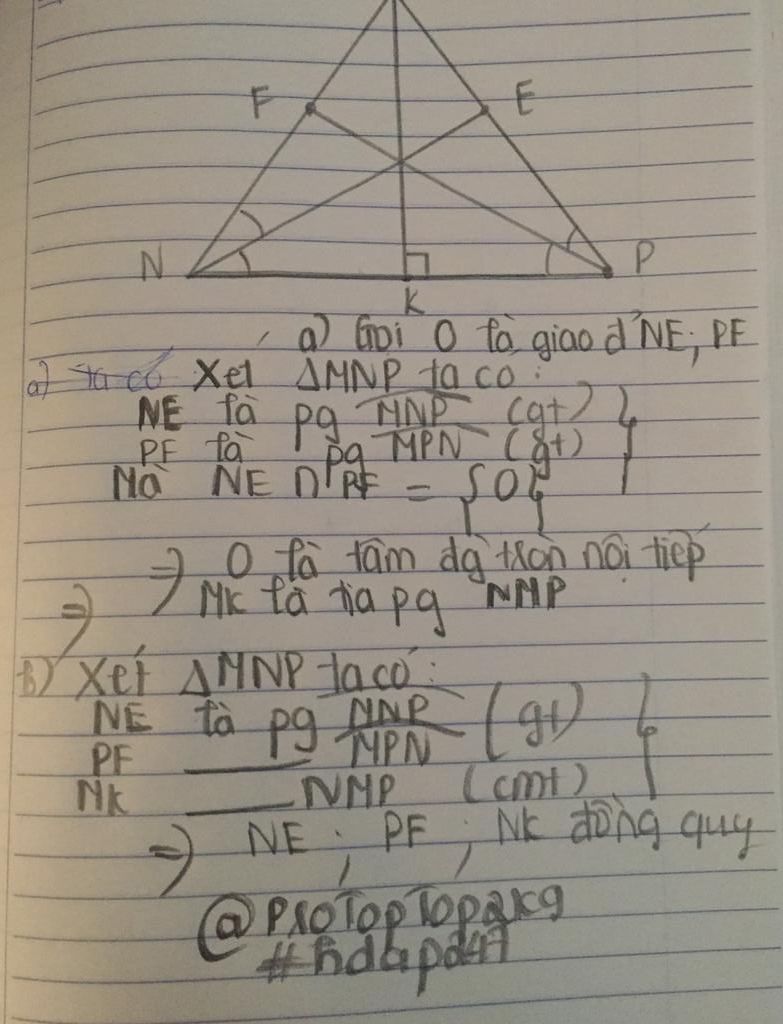 F E
N P
K
a) Gọi O là giao đ' NE; PF
a) ta có Xét ΔMNP ta có:
NE là pg MNP (gt)
PF là pg MPN (gt)
Mà NE ∩ PF = {O}
⇒ O là tâm đg tròn nội tiếp
⇒ MK là tia pg NMP
b) Xét ΔMNP ta có:
NE là pg MNP (gt)
PF ____ MPN
MK ____ NMP (cmt)
⇒ NE ; PF ; NK đồng quy
@ProTopTop2k9